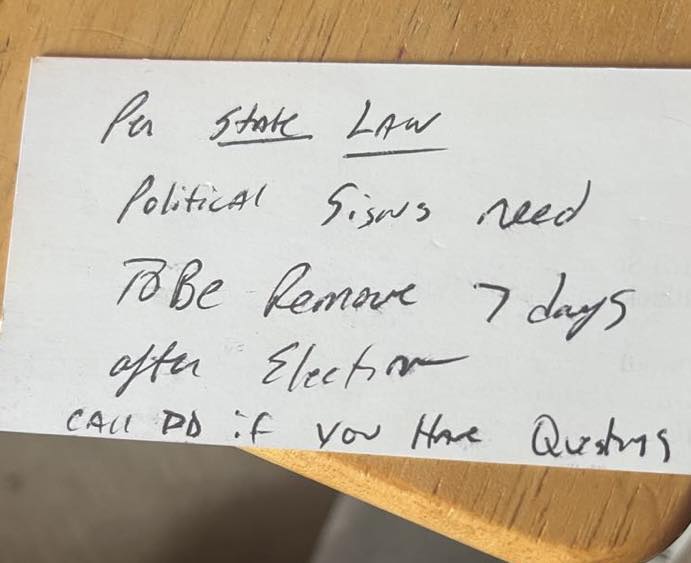 Per State LAW
Political Signs need
To Be Remove 7 days
after Election
CAll PD if you Have Questns